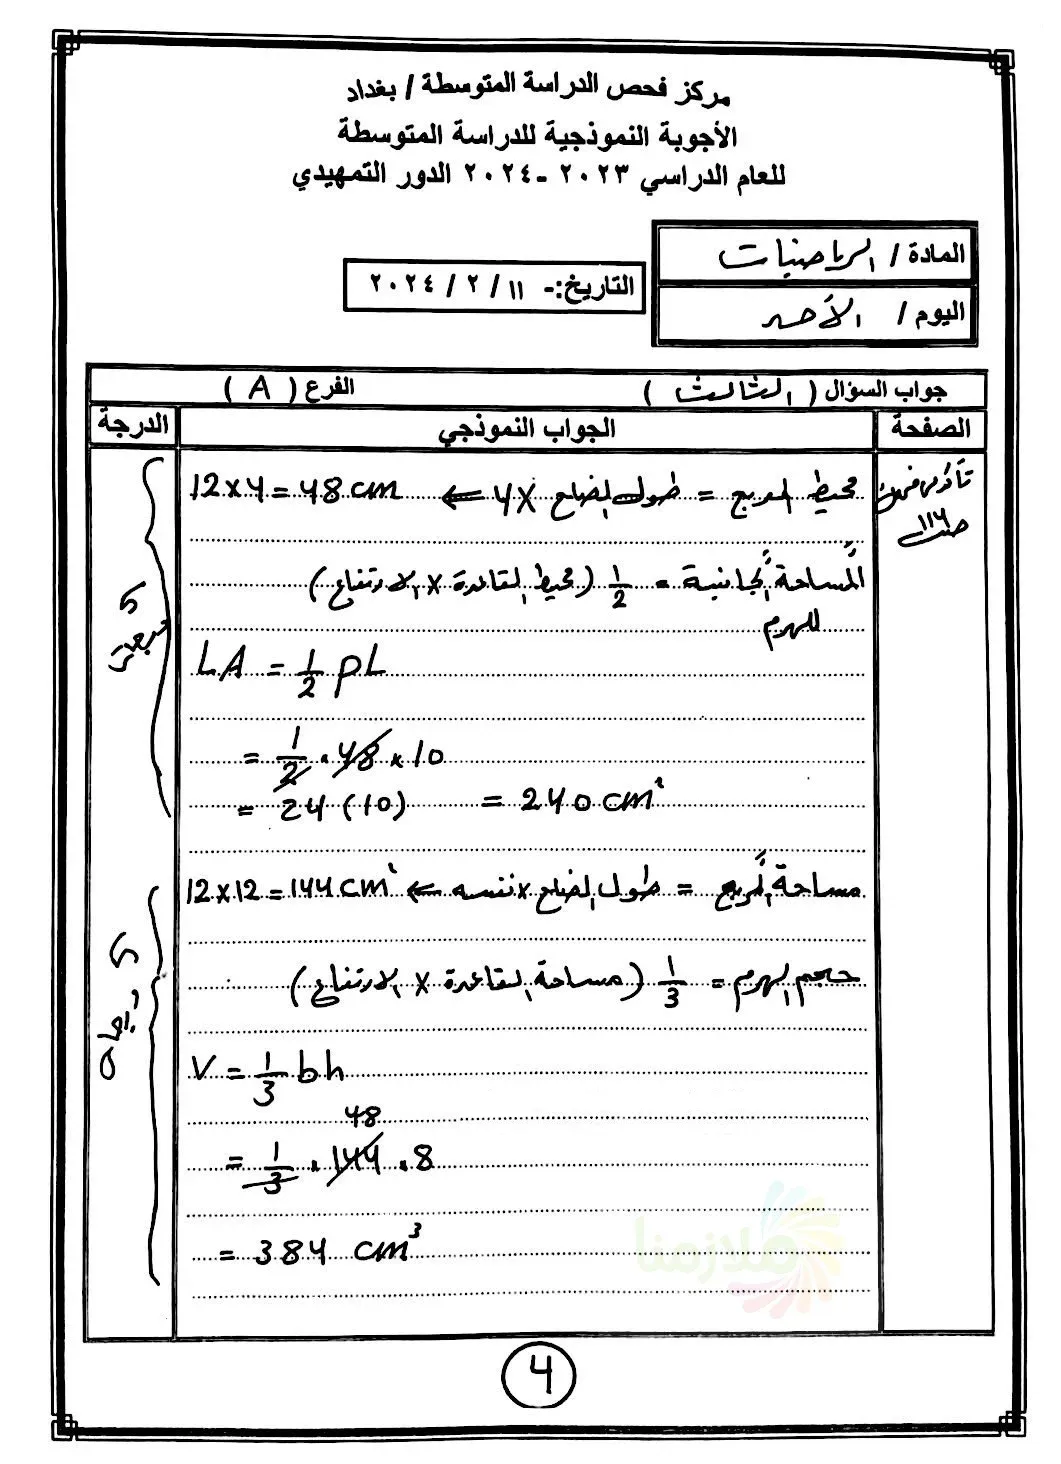 مركز فحص الدراسة المتوسطة / بغداد
الأجوبة النموذجية للدراسة المتوسطة
للعام الدراسي ٢٠٢٣ - ٢٠٢٤ الدور التمهيدي
المادة / الرياضيات
اليوم / الأحد
التاريخ:- ١١ / ٢ / ٢٠٢٤
جواب السؤال ( الثالث ) الفرع ( A )
الصفحة الجواب النموذجي الدرجة
محيط المربع = طول الضلع 4X ← 12 x 4 = 48 cm
ص ١١٦
المساحة الجانبية = 1/2 (محيط القاعدة X الارتفاع)
للهرم
5
LA = 1/2 pL
= 1/2 . 48 x 10
= 24 (10) = 240 cm²
مساحة المربع = طول الضلع x نفسه ← 12 x 12 = 144 cm²
حجم الهرم = 1/3 (مساحة القاعدة X الارتفاع)
5 درجات
V = 1/3 bh
48
= 1/3 . 144 . 8
= 384 cm³
ملازمنا
4